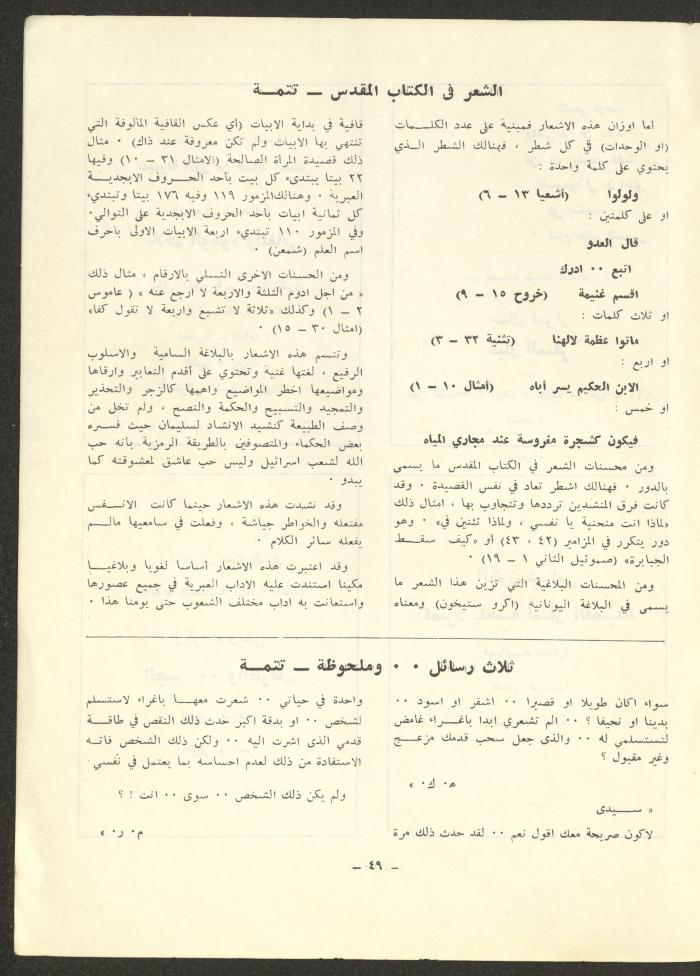 الشعر في الكتاب المقدس ــ تتمــة
أما اوزان هذه الاشعار فمبنية على عدد الكلــمات
(او الوحدات) في كل شطر ، فهنالك الشطر الــذي
يحتوي على كلمة واحدة :
ولولوا (أشعيا ١٣ – ٦)
او على كلمتين :
قال العدو
اتبع ٠٠ ادرك
اقسم غنيمة (خروج ١٥ – ٩)
او ثلاث كلمات :
ماتوا عظمة لالهنا (تثنية ٣٢ – ٣)
او اربع :
الابن الحكيم يسر أباه (أمثال ١٠ – ١)
او خمس :
فيكون كشجرة مغروسة عند مجاري المياه
ومن محسنات الشعر في الكتاب المقدس ما يسمى
بالدور ٠ فهنالك اشطر تعاد في نفس القصيدة ٠ وقد
كانت فرق المنشدين ترددها وتتجاوب بها ، امثال ذلك
«لماذا انت منحنية يا نفسي ، ولماذا تئنين في» ٠ وهو
دور يتكرر في المزامير (٤٢ ، ٤٣) أو «كيف سقــط
الجبابرة» (صموئيل الثاني ١ – ١٩) ٠
ومن المحسنات البلاغية التي تزين هذا الشعر ما
يسمى في البلاغة اليونانية (اكرو ستيخون) ومعناه
قافية في بداية الابيات (أي عكس القافية المألوفة التي
تنتهي بها الابيات ولم تكن معروفة عند ذاك) ٠ مثال
ذلك قصيدة المرأة الصالحة (الامثال ٣١ – ١٠) وفيها
٢٢ بيتا يبتدىء كل بيت بأحد الحــروف الابجديــة
العبرية ٠ وهنالك المزمور ١١٩ وفيه ١٧٦ بيتا وتبتدىء
كل ثمانية ابيات بأحد الحروف الابجدية على التوالي٠
وفي المزمور ١١٠ تبتدىء اربعة الابيات الاولى بأحرف
اسم العلم (شمعن) ٠
ومن الحسنات الاخرى التسلي بالارقام ، مثال ذلك
« من اجل ادوم الثلثة والاربعة لا ارجع عنه » ( عاموس
٢ – ١) وكذلك «ثلاثة لا تشبع واربعة لا تقول كفا»
(امثال ٣٠ – ١٥) ٠
وتتسم هذه الاشعار بالبلاغة السامية والاسلوب
الرفيع ، لغتها غنية وتحتوي على أقدم التعابير وارقاها
ومواضيعها اخطر المواضيع واهمها كالزجر والتحذير
والتمجيد والتسبيح والحكمة والنصح ، ولم تخل من
وصف الطبيعة كنشيد الانشاد لسليمان حيث فســره
بعض الحكماء والمتصوفين بالطريقة الرمزية بأنه حب
الله لشعب اسرائيل وليس حب عاشق لمعشوقته كما
يبدو ٠
وقد نشدت هذه الاشعار حينما كانت الانــفس
مفتعله والخواطر جياشة ، وفعلت في سامعيها مالــم
يفعله سائر الكلام ٠
وقد اعتبرت هذه الاشعار أساسا لغويا وبلاغيــا
مكينا استندت عليه الاداب العبرية في جميع عصورها
واستعانت به اداب مختلف الشعوب حتى يومنا هذا ٠
ثلاث رسائل ٠٠ وملحوظة ــ تتمــة
سواء اكان طويلا او قصيرا ٠٠ اشقر او اسود ٠٠
بدينا او نحيفا ؟ ٠٠ الم تشعري ابدا باغــراء غامض
لتستسلمي له ٠٠ والذى جعل سحب قدمك مزعــج
وغير مقبول ؟
ه٠ ك٠ »
« ســيدى
لاكون صريحة معك اقول نعم ٠٠ لقد حدث ذلك مرة
واحدة في حياتي ٠٠ شعرت معهــا باغراء لاستسلم
لشخص ٠٠ او بدقة اكبر حدث ذلك النقص في طاقــة
قدمي الذى اشرت اليه ٠٠ ولكن ذلك الشخص فاتــه
الاستفادة من ذلك لعدم احساسه بما يعتمل في نفسي٠
ولم يكن ذلك الشخص ٠٠ سوى ٠٠ انت ! ؟
م٠ ر٠ »
– ٤٩ –